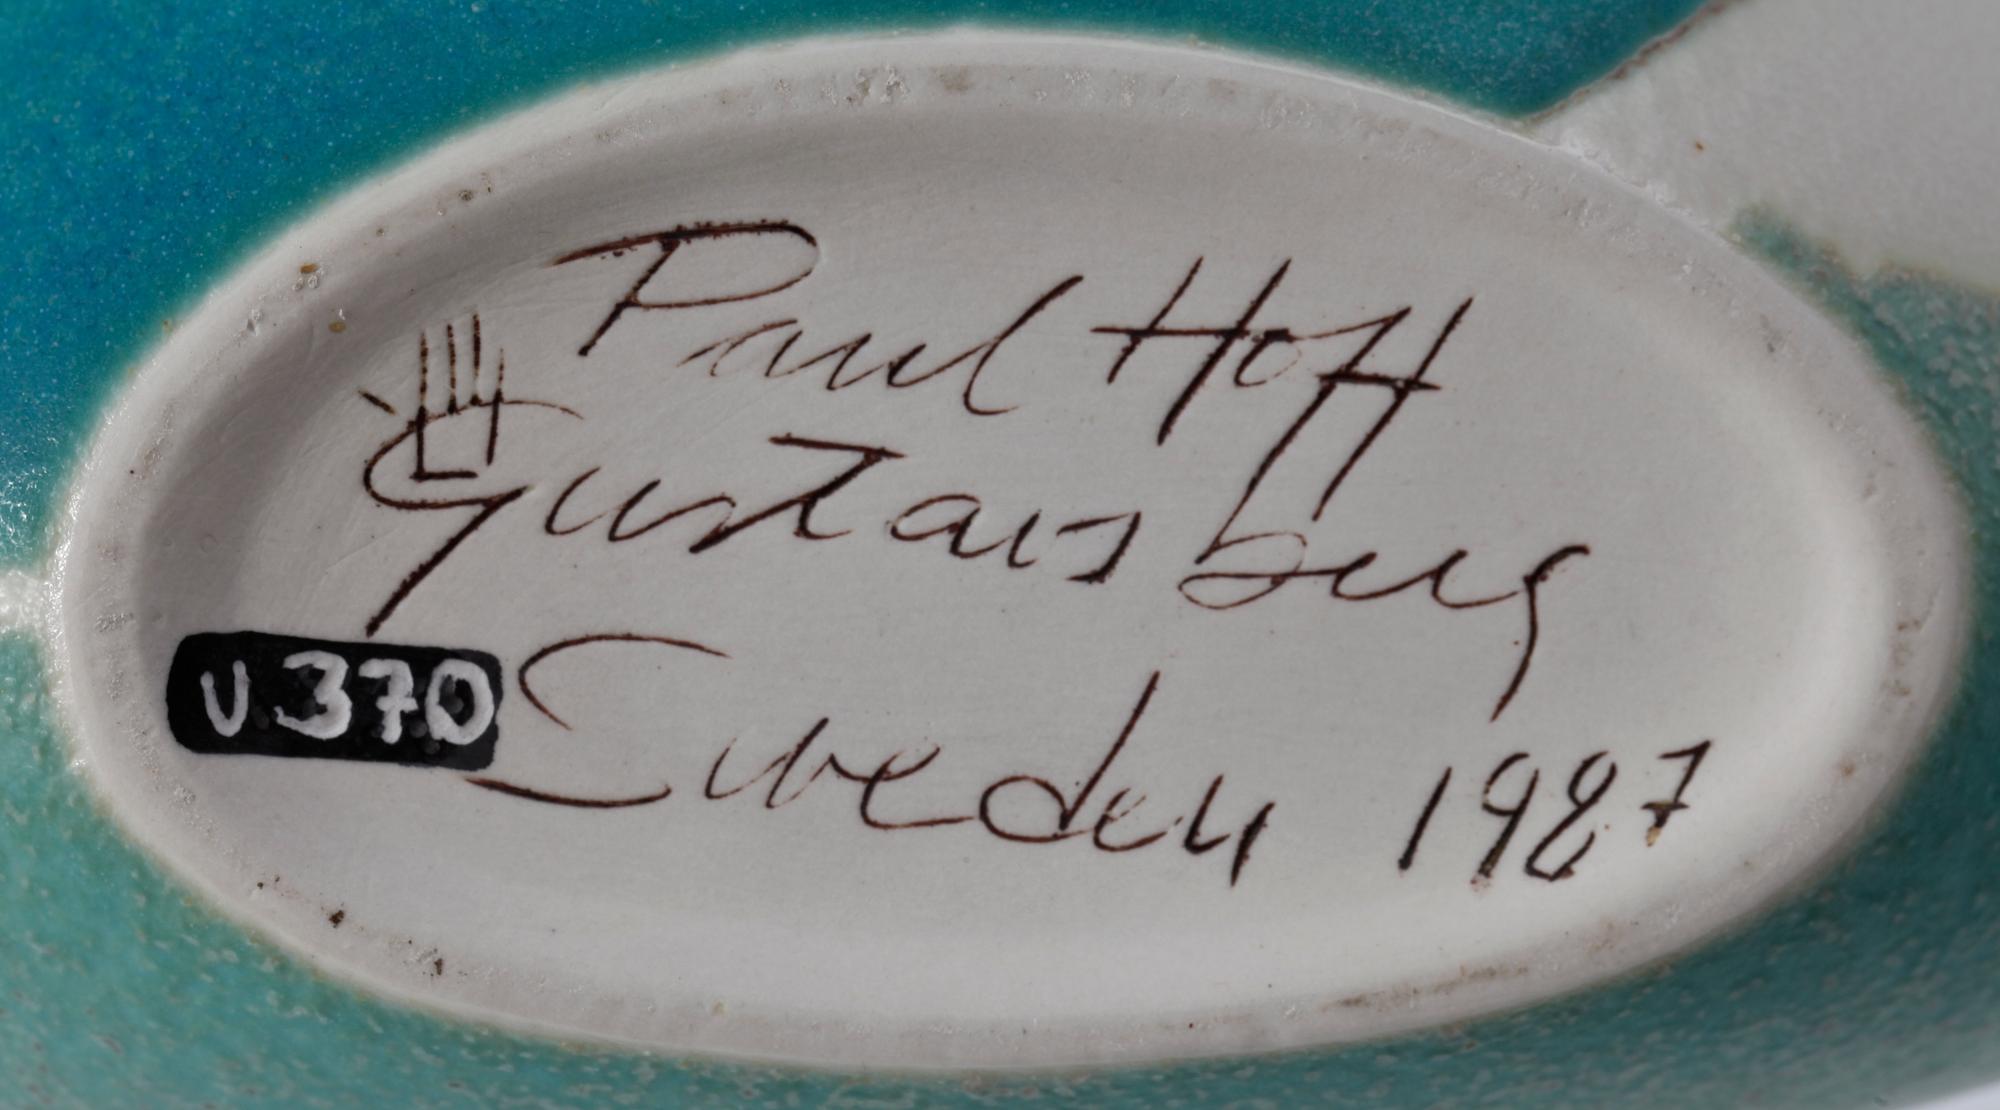 Paul Hoff
Gustavsberg
V.370
Sweden 1987